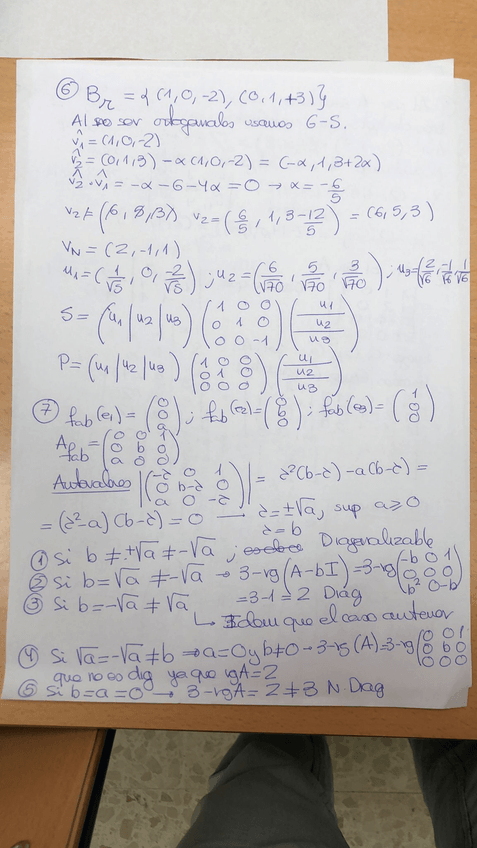 ⑥ B_r = {(1,0,-2), (0,1,+3)}
Al no ser ortogonales usamos G-S.
v̂1 = (1,0,-2)
v̂2 = (0,1,3) - α(1,0,-2) = (-α, 1, 3+2α)
v̂2 · v̂1 = -α - 6 - 4α = 0 → α = -6/5
v2 = (6/5, 1, 3 - 12/5) = (6,5,3)
V_N = (2,-1,1)
u1 = (1/√5, 0, -2/√5) ; u2 = (6/√70, 5/√70, 3/√70) ; u3 = (2/√6, -1/√6, 1/√6)
S = (u1 | u2 | u3) (1 0 0 / 0 1 0 / 0 0 -1) (u1 / u2 / u3)
P = (u1 | u2 | u3) (1 0 0 / 0 1 0 / 0 0 0) (u1 / u2 / u3)
⑦ fab(e1) = (0 / 0 / a) ; fab(e2) = (0 / b / 0) ; fab(e3) = (1 / 0 / 0)
A fab = (0 0 1 / 0 b 0 / a 0 0)
Autovalores |(-λ 0 1 / 0 b-λ 0 / a 0 -λ)| = λ²(b-λ) - a(b-λ) =
= (λ²-a)(b-λ) = 0 → λ = ±√a, sup a ≥ 0
λ = b
① Si b ≠ +√a ≠ -√a ; Diagonalizable
② Si b = √a ≠ -√a → 3-rg(A-bI) = 3-rg(-b 0 1 / 0 0 0 / b² 0 -b)
= 3-1 = 2 Diag
③ Si b = -√a ≠ √a
↳ Idem que el caso anterior
④ Si √a = -√a ≠ b ⇒ a=0 y b≠0 → 3-rg(A) = 3-rg(0 0 1 / 0 b 0 / 0 0 0)
que no es dig ya que rgA = 2
⑤ Si b = a = 0 → 3-rgA = 2 ≠ 3 N. Diag